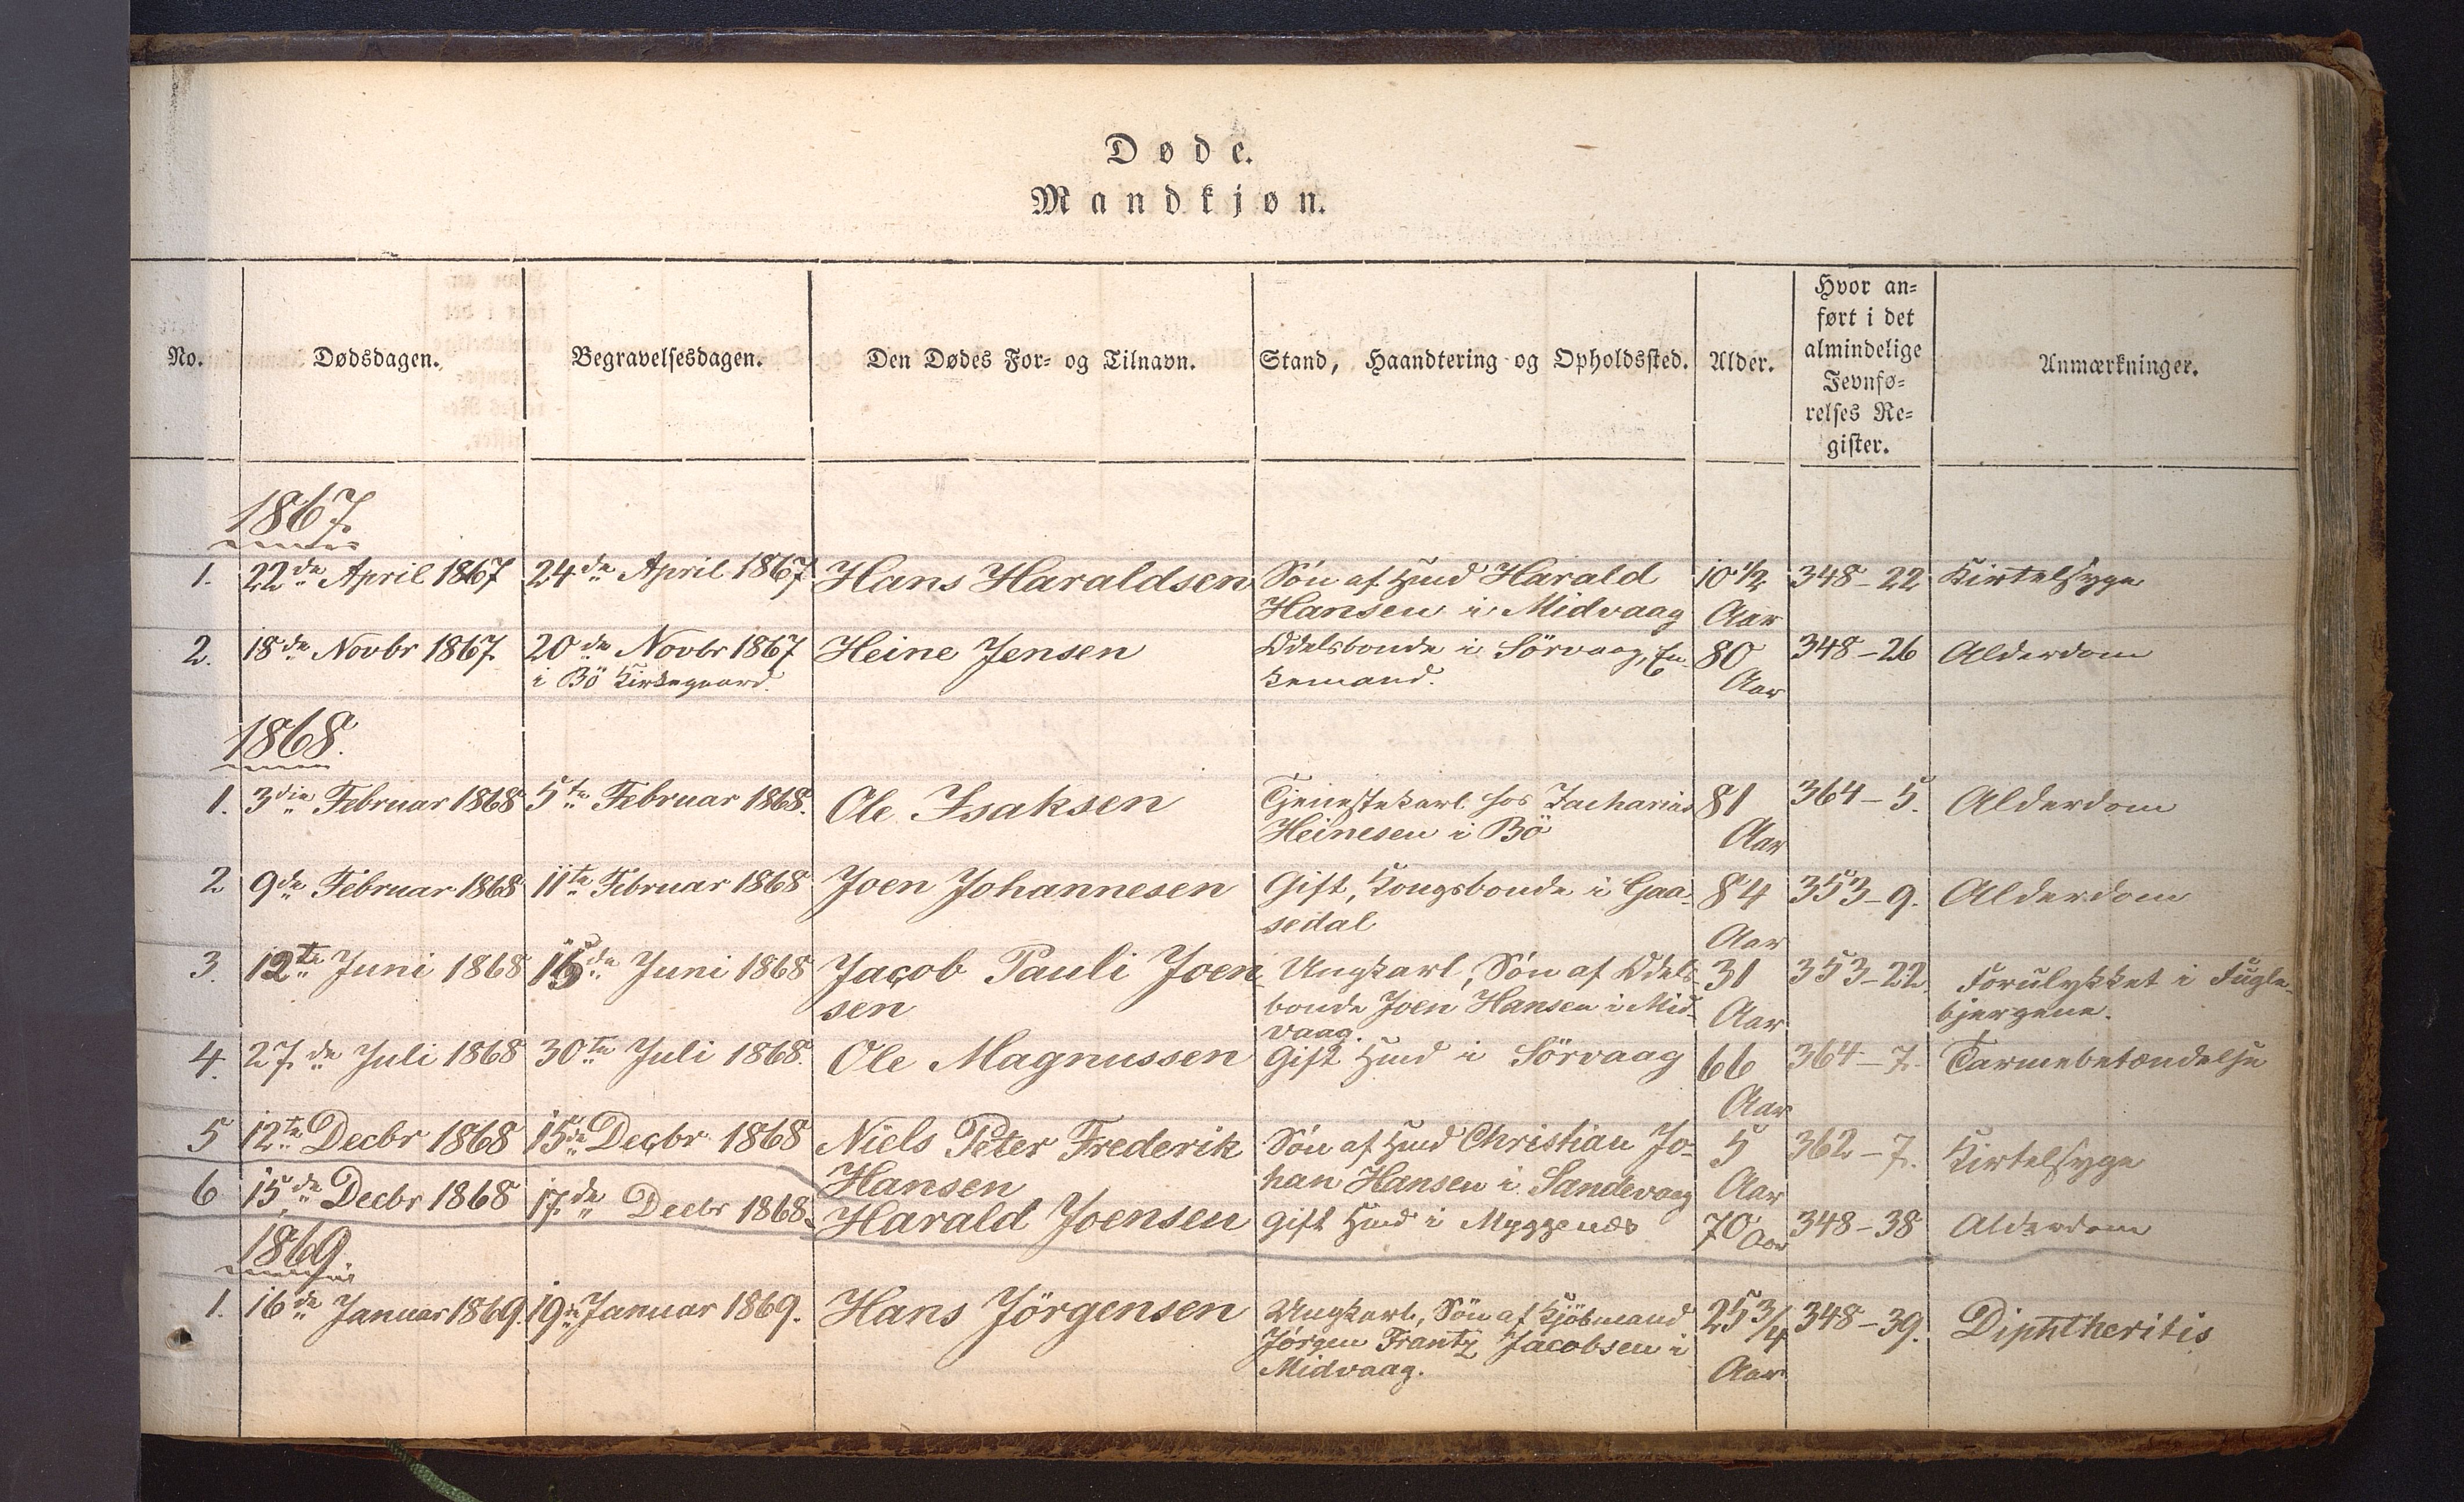 Døde.
Mandkjøn.
No. Dødsdagen. Begravelsesdagen. Den Dødes For- og Tilnavn. Stand, Haandtering og Opholdssted. Alder. Hvor an=
ført i det
almindelige
Jevnfø=
relses Re=
gister. Anmærkninger.
1867.
1. 22de April 1867 24de April 1867 Hans Haraldsen Søn af Hmd Harald 10 1/2 348-22 Kirtelsyge
Hansen i Midvaag Aar
2. 18de Novbr 1867. 20de Novbr 1867 Heine Jensen Odelsbonde i Sörvaag, En 80 348-26 Alderdom
i Bö Kirkegaard. kemand. Aar
1868.
1. 3die Februar 1868 5te Februar 1868. Ole Isaksen Tjenestekarl hos Zacharias 81 364-5. Alderdom
Heinesen i Bö Aar
2 9de Februar 1868 11te Februar 1868 Joen Johannesen Gift, Kongsbonde i Gaa- 84 353-9. Alderdom
sedal Aar
3. 12te Juni 1868 15de Juni 1868 Jacob Pauli Joen Ungkarl, Søn af Odels- 31 353-22. Forulykket i Fugle-
sen bonde Joen Hansen i Mid- Aar bjergene.
vaag.
4. 27de Juli 1868 30te Juli 1868. Ole Magnussen Gift Hmd i Sörvaag 66 364-7. Tarmebetændelse
Aar
5 12te Decbr 1868 15de Decbr 1868 Niels Peter Frederik Søn af Hmd Christian Jo- 5 362-7. Kirtelsyge
Hansen han Hansen i Sandevaag Aar
6 15de Decbr 1868 17de Decbr 1868. Harald Joensen Gift Hmd i Myggenæs 70 Aar 348-38 Alderdom
1869
1. 16de Januar 1869. 19de Januar 1869. Hans Jörgensen Ungkarl, Søn af Kjöbmand 25 3/4 348-39. Diphtheritis
Jörgen Frantz Jacobsen i Aar
Midvaag.